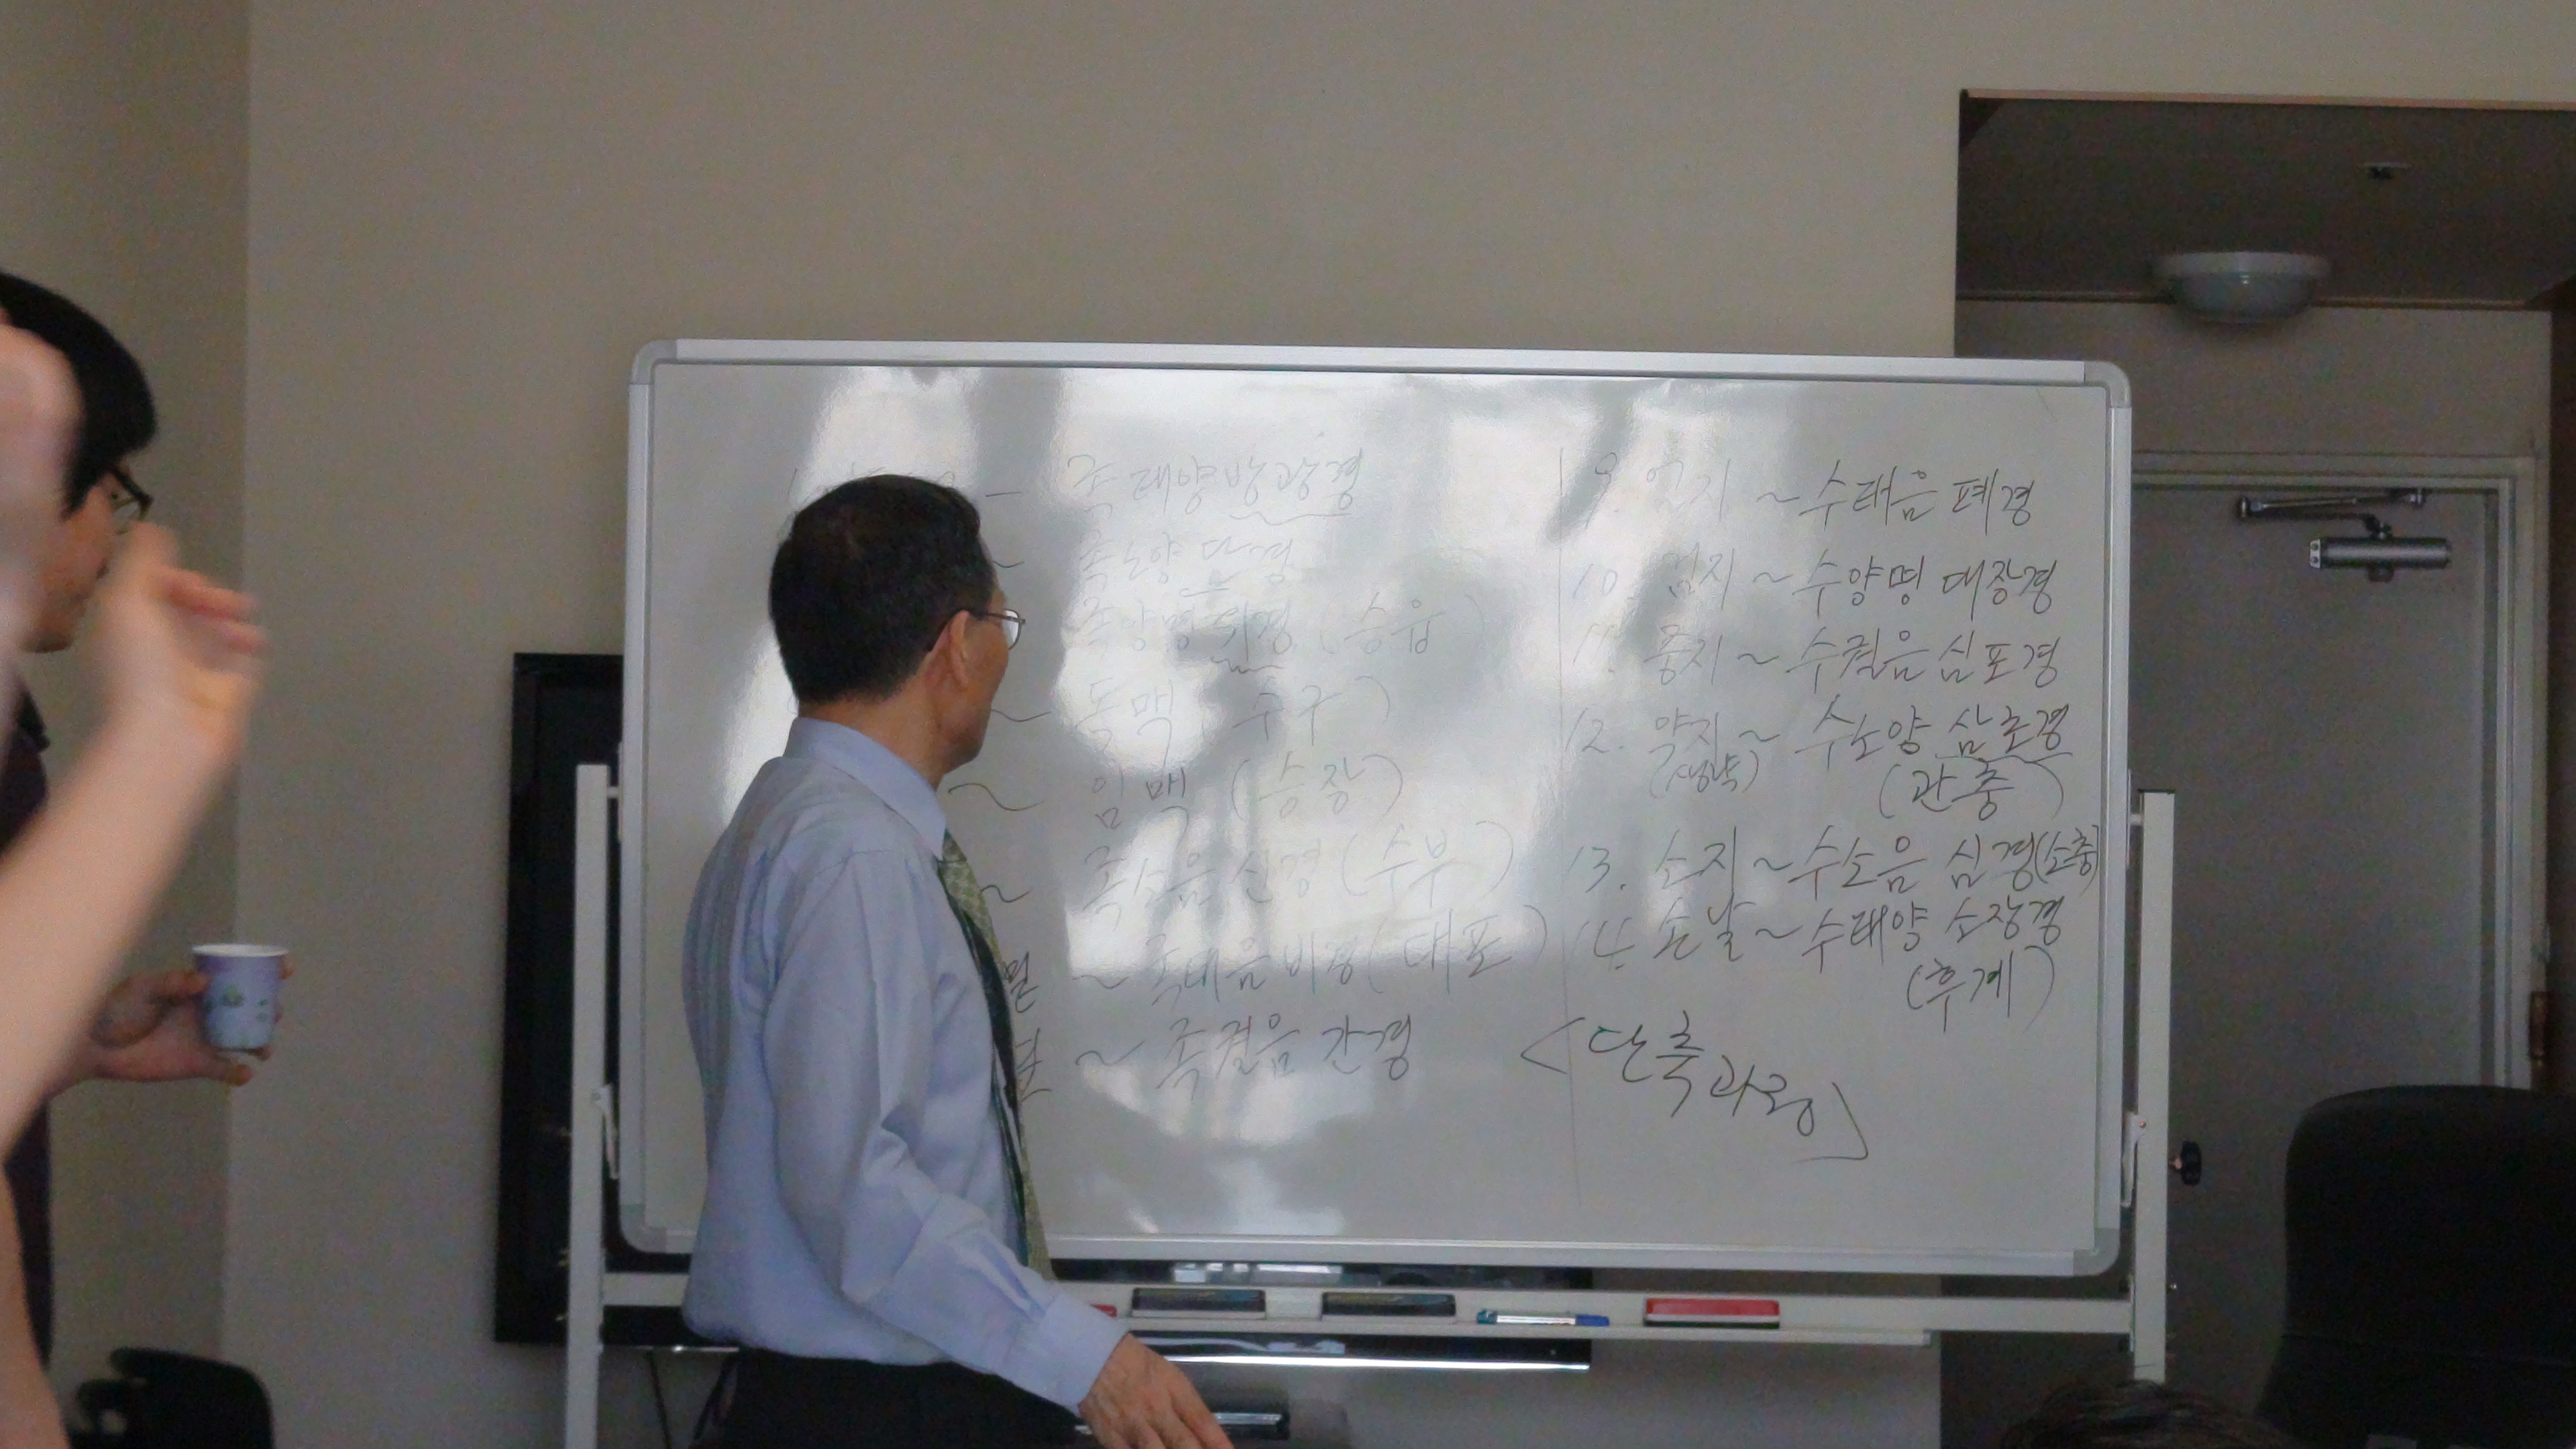 족태양방광경
~ 족소양 담경
족양명위경 (승읍)
~ 독맥 수구)
~ 임맥 (승장)
~ 족소음 신경 (수부)
~ 족태음비경 (대포)
~ 족궐음 간경
9. 엄지 ~ 수태음 폐경
10. 검지 ~ 수양명 대장경
11. 중지 ~ 수궐음 심포경
12. 약지 ~ 수소양 삼초경
(관충)
13. 소지 ~ 수소음 심경(소충)
14. 손날 ~ 수태양 소장경
(후계)
<단축과정>